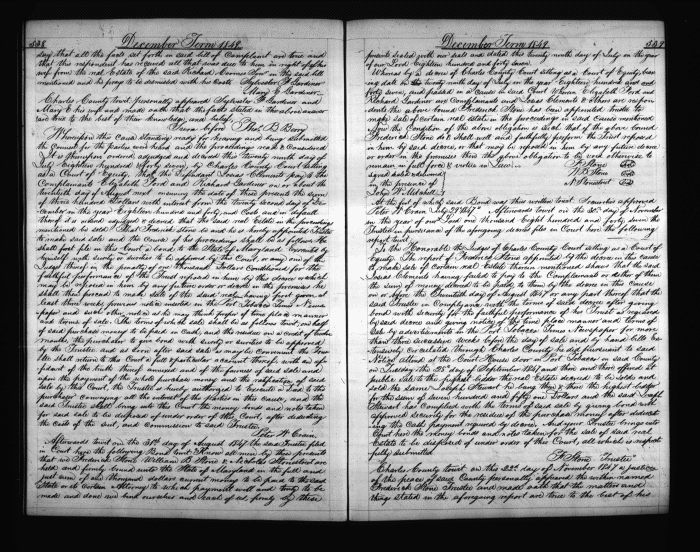 538 December Term 1849.
say that all the facts set forth in said bill of Complaint are true and
that this respondent has received all that was due to him in right of his
wife from the real Estate of the said Richard Clements Senr in the said bill
mentioned and he prays to be dismissed with his Costs. Sylvester F. Gardiner
Mary E. Gardiner
Charles County towit, personally appeared Sylvester F. Gardiner and
Mary E his wife and made oath that the facts stated in the above answer
are true to the best of their knowledge and belief.
Sworn before Thos B. Berry
Whereupon this Cause standing ready for hearing and being submitted
the Counsel for the parties were heard and the proceedings read & Considered
It is therefore ordered, adjudged and decreed this twenty ninth day of
July Eighteen Hundred & forty seven, by Charles County Court sitting
as a Court of Equity, that the Defendant Josias Clements pay to the
Complainants Elizabeth Ford and Richard Gardiner on or about the
thirtieth day of August next ensuing the date of these presents the sum
of three hundred dollars with interest from the twenty second day of De-
cember in the year Eighteen hundred and forty and Costs and in default
thereof it is ordered adjudged & decreed, that the said real Estate in the proceedings
mentioned be sold That Frederick Stone be and he is hereby appointed Trustee
to make said sale and the Course of his proceedings shall be as follows He
shall first file in this Court a bond to the State of Maryland executed by
himself with surety or sureties to be approved by this Court, or any one of the
Judges thereof in the penalty of one thousand Dollars Conditioned for the
faithful performance of the Trust reposed in him by this decree or which
may be reposed in him by any future order or decree in the premises he
shall then proceed to make sale of the said realty having first given at
least three weeks previous notice inserted in the Port Tobacco Times a News
paper and such other notice as he may think proper of time place manner
and terms of sale. The terms of which sale shall be as follows towit; one half
of said purchase money to be paid in Cash, and the residue on a credit of twelve
months, the purchaser to give bond with surety or sureties to be approved
by the Trustee and as soon after said sale as may be convenient the trus-
tee shall return to this Court a full & particular account thereof with an af-
fidavit of the truth thereof annexed and of the fairness of said sale and
upon the payment of the whole purchase money and the ratification of said
sale by this Court, the Trustee is hereby authorised to execute a Deed to the
purchaser conveying all the interest of the parties in this cause, and the
said Trustee shall bring into this Court the money bonds and notes taken
for said sale to be disposed of under order of this Court, after deducting
the costs of the suit, and commission to said Trustee.
Peter W. Crain
Afterwards towit on the 31st day of August 1847 the said Trustee filed
in Court here the following Bond towit, Know all men by these presents
that we Frederick Stone William B. Stone & Nicholas Stonestreet are
held and firmly bound unto the State of Maryland in the full and
just sum of one thousand dollars current money to be paid to the said
State or its Certain Attorney to which payment well and truly to be
made and done we bind ourselves and each of us firmly by these
December Term 1849. 539
presents sealed with our seals and dated this twenty ninth day of July in the year
of our Lord Eighteen hundred and forty seven.
Whereas by a decree of Charles County Court sitting as a Court of Equity, bear-
ing date on the twenty ninth day of July in the year Eighteen hundred and forty
seven, and passed in a Cause in said Court Wherein Elizabeth Ford and
Richard Gardiner are Complainants and Josias Clements & Others are respon-
dents the above bound Frederick Stone has been appointed trustee to
make sale of certain real estate in the proceedings in said Cause mentioned
Now the Condition of the above obligation is such that if the above bound
Frederick Stone do & shall well and faithfully perform the Trust reposed
in him by said decree, or that may be reposed in him by any future decree
or order in the premises then the above obligation to be void otherwise to
remain in full force & virtue in Law. F. Stone Seal
signed sealed & delivered W. B. Stone Seal
in the presence of N. Stonestreet Seal
John W. Mitchell
At the foot of which said Bond was thus written towit. Securities approved
Peter W. Crain July 29th 1847. Afterwards towit on the 22d day of November
in the year of our Lord one thousand Eight hundred and forty seven the
Trustee in pursuance of the aforegoing decree files in Court here the following
report towit,
To the Honorable the Judges of Charles County Court sitting as a Court of
Equity. The report of Frederick Stone appointed by the decree in this cause
to make sale of certain real Estate therein mentioned shews that the said
Josias Clements having failed to pay to the Complainants or either of them
the sum of money decreed to be paid to them by the decree in this cause
on or before the thirtieth day of August 1847 or any part thereof that the
said Trustee in Compliance with the terms of said decree after giving
bond with security for the faithful performance of his Trust as required
by said decree and giving notice of the time place manner and terms of
sale by advertisement in the Port Tobacco Times a Newspaper for more
than three successive weeks before the day of sale and by hand bills ex-
tensively circulated through Charles County he did pursuant to said
Notice attend at the Court House door in Port Tobacco in said County
on Tuesday the 28th day of September 1847 and then and there offered at
public sale to the highest bidder the real estate decreed to be sold and
sold the same to Joseph Stewart he being then & there the highest bidder
for the sum of seven hundred and fifty one Dollars and the said Joseph
Stewart has Complied with the terms of said sale by giving bond with
approved security for the residue of the purchase money after deduct-
ing the Cash payment required by decree, And your Trustee brings into
Court here the money bond and notes taken for the sale of said real
Estate to be disposed of under order of this Court, all which is respect-
fully submitted.
F. Stone Trustee
Charles County towit on this 22d day of November 1847 a justice
of the peace of said County personally appeared the within named
Frederick Stone Trustee and made oath that the matters and
things stated in the aforegoing report are true to the best of his